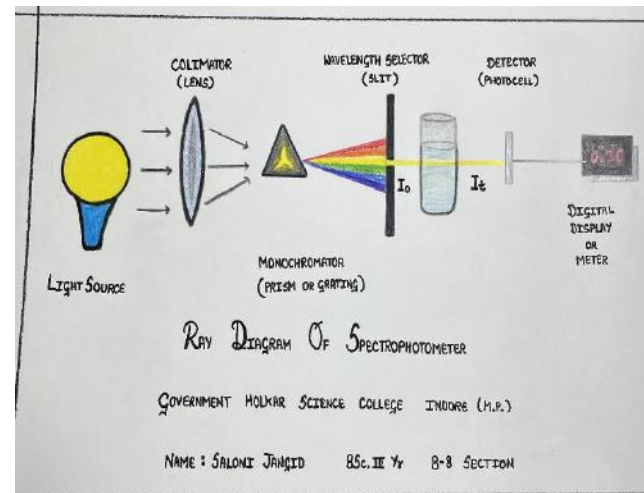 COLIMATOR
(LENS)
WAVELENGTH SELECTOR
(SLIT)
DETECTOR
(PHOTOCELL)
I₀
It
0.30
LIGHT SOURCE
MONOCHROMATOR
(PRISM OR GRATING)
DIGITAL
DISPLAY
OR
METER
RAY DIAGRAM OF SPECTROPHOTOMETER
GOVERNMENT HOLKAR SCIENCE COLLEGE INDORE (M.P.)
NAME : SALONI JANGID BSC. III Yr B-8 SECTION